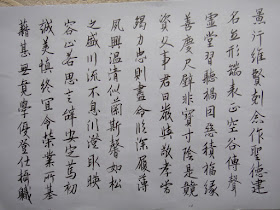 景行維賢剋念作聖德建
名立形端表正空谷傳聲
虛堂習聽禍因惡積福緣
善慶尺璧非寶寸陰是競
資父事君曰嚴與敬孝當
竭力忠則盡命臨深履薄
夙興溫清似蘭斯馨如松
之盛川流不息淵澄取映
容止若思言辭安定篤初
誠美慎終宜令榮業所基
藉甚無竟學優登仕攝職